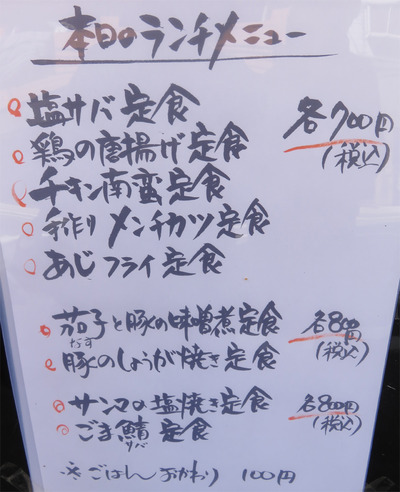 本日のランチメニュー
塩サバ定食 各700円
鶏の唐揚げ定食 (税込)
チキン南蛮定食
手作りメンチカツ定食
あじフライ定食
茄子と豚の味噌煮定食 各800円
なす
豚のしょうが焼き定食 (税込)
サンマの塩焼き定食 各800円
ごま鯖定食 (税込)
サバ
※ごはんおかわり 100円